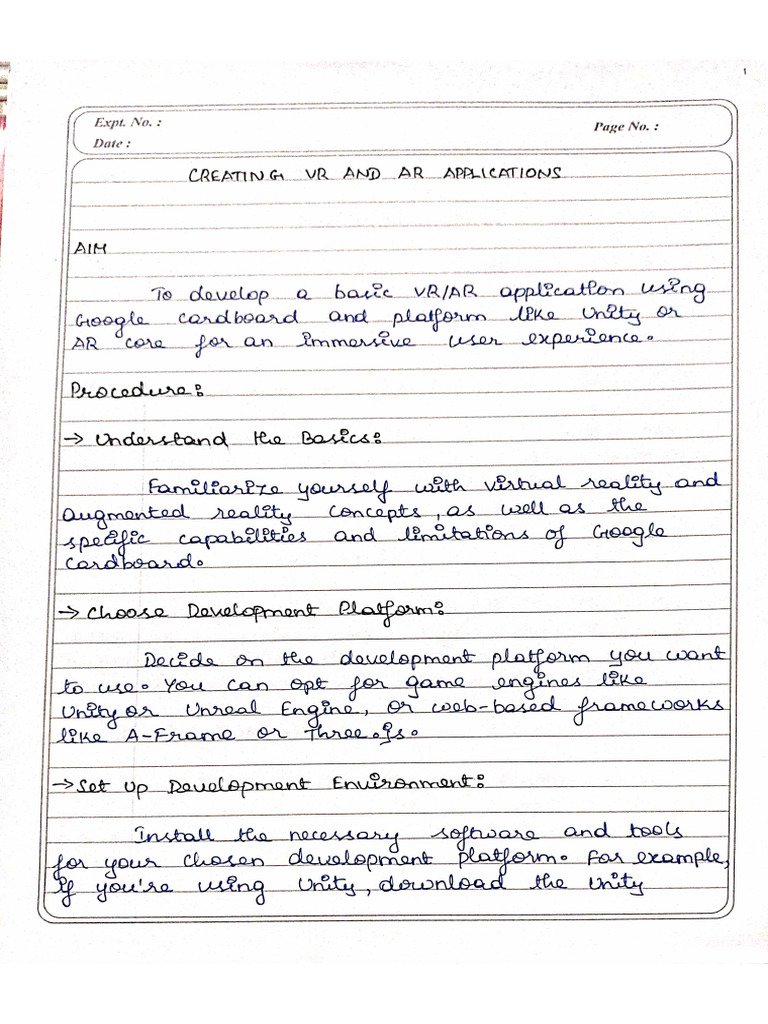 1
Expt. No. :
Page No. :
Date :
CREATING VR AND AR APPLICATIONS
AIM
To develop a basic VR/AR application using
Google cardboard and platform like Unity or
AR core for an immersive user experience.
Procedure:
→ Understand the Basics:
Familiarize yourself with virtual reality and
augmented reality concepts, as well as the
specific capabilities and limitations of Google
Cardboard.
→ Choose Development Platform:
Decide on the development platform you want
to use. You can opt for game engines like
Unity or Unreal Engine, or web-based frameworks
like A-Frame or Three.js.
→ Set Up Development Environment:
Install the necessary software and tools
for your chosen development platform. For example,
if you're using Unity, download the Unity